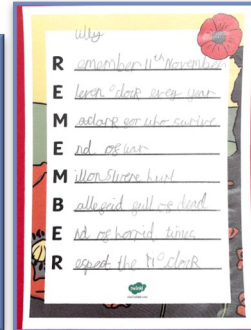 Lilly
Remember 11th November
Eleven o'clock every year
M who survive
End of war
Millions were hurt
B full of dead
End of horrid times
Respect the 11 o'clock
twinkl